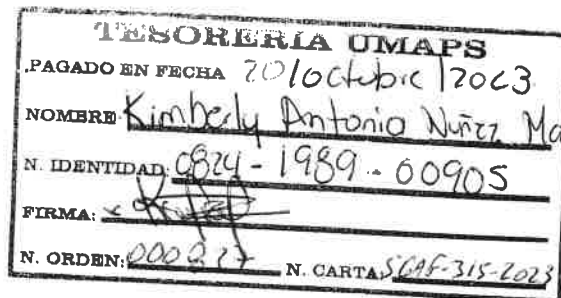 TESORERIA UMAPS
PAGADO EN FECHA 20/Octubre/2023
NOMBRE Kimberly Antonio Nuñez Ma
N. IDENTIDAD: 0824-1989-00905
FIRMA: x
N. ORDEN: 000227 N. CARTA: SCAF-315-2023